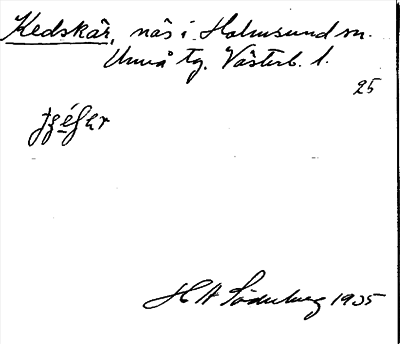 Kedskär, näs i Holmsund sn.
Umeå tg. Västerb. l.
25
H A Söderberg 1935